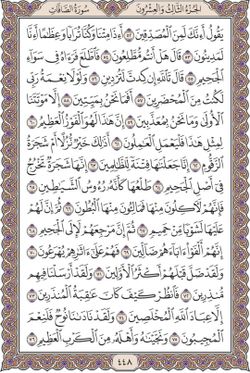 سُورَةُ الصَّافَّاتِ الجُزْءُ الثَّالِثُ وَالعِشْرُونَ
يَقُولُ أَءِنَّكَ لَمِنَ ٱلْمُصَدِّقِينَ ٥٢ أَءِذَا مِتْنَا وَكُنَّا تُرَابًا وَعِظَٰمًا أَءِنَّا
لَمَدِينُونَ ٥٣ قَالَ هَلْ أَنتُم مُّطَّلِعُونَ ٥٤ فَٱطَّلَعَ فَرَءَاهُ فِى سَوَآءِ
ٱلْجَحِيمِ ٥٥ قَالَ تَٱللَّهِ إِن كِدتَّ لَتُرْدِينِ ٥٦ وَلَوْلَا نِعْمَةُ رَبِّى
لَكُنتُ مِنَ ٱلْمُحْضَرِينَ ٥٧ أَفَمَا نَحْنُ بِمَيِّتِينَ ٥٨ إِلَّا مَوْتَتَنَا
ٱلْأُولَىٰ وَمَا نَحْنُ بِمُعَذَّبِينَ ٥٩ إِنَّ هَٰذَا لَهُوَ ٱلْفَوْزُ ٱلْعَظِيمُ ٦٠
لِمِثْلِ هَٰذَا فَلْيَعْمَلِ ٱلْعَٰمِلُونَ ٦١ أَذَٰلِكَ خَيْرٌ نُّزُلًا أَمْ شَجَرَةُ
ٱلزَّقُّومِ ٦٢ إِنَّا جَعَلْنَٰهَا فِتْنَةً لِّلظَّٰلِمِينَ ٦٣ إِنَّهَا شَجَرَةٌ تَخْرُجُ
فِىٓ أَصْلِ ٱلْجَحِيمِ ٦٤ طَلْعُهَا كَأَنَّهُۥ رُءُوسُ ٱلشَّيَٰطِينِ ٦٥
فَإِنَّهُمْ لَءَاكِلُونَ مِنْهَا فَمَالِـُٔونَ مِنْهَا ٱلْبُطُونَ ٦٦ ثُمَّ إِنَّ لَهُمْ
عَلَيْهَا لَشَوْبًا مِّنْ حَمِيمٍ ٦٧ ثُمَّ إِنَّ مَرْجِعَهُمْ لَإِلَى ٱلْجَحِيمِ ٦٨
إِنَّهُمْ أَلْفَوْا۟ ءَابَآءَهُمْ ضَآلِّينَ ٦٩ فَهُمْ عَلَىٰٓ ءَاثَٰرِهِمْ يُهْرَعُونَ ٧٠
وَلَقَدْ ضَلَّ قَبْلَهُمْ أَكْثَرُ ٱلْأَوَّلِينَ ٧١ وَلَقَدْ أَرْسَلْنَا فِيهِم
مُّنذِرِينَ ٧٢ فَٱنظُرْ كَيْفَ كَانَ عَٰقِبَةُ ٱلْمُنذَرِينَ ٧٣
إِلَّا عِبَادَ ٱللَّهِ ٱلْمُخْلَصِينَ ٧٤ وَلَقَدْ نَادَىٰنَا نُوحٌ فَلَنِعْمَ
ٱلْمُجِيبُونَ ٧٥ وَنَجَّيْنَٰهُ وَأَهْلَهُۥ مِنَ ٱلْكَرْبِ ٱلْعَظِيمِ ٧٦
٤٤٨